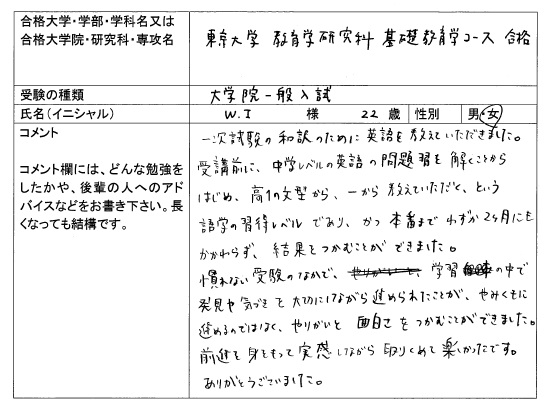 合格大学・学部・学科名又は
合格大学院・研究科・専攻名
東京大学 教育学研究科 基礎教育学コース 合格
受験の種類
大学院一般入試
氏名(イニシャル)
W.I 様 22 歳 性別 男・女
コメント
コメント欄には、どんな勉強を
したかや、後輩の人へのアド
バイスなどをお書き下さい。長
くなっても結構です。
一次試験の和訳のために英語を教えていただきました。
受講前に、中学レベルの英語の問題習を解くことから
はじめ、高1の文型から、一から教えていただく、という
語学の習得レベルであり、かつ本番までわずか2ヶ月にも
かかわらず、結果をつかむことができました。
慣れない受験のなかで、学習の中で
発見や気づきを大切にしながら進められたことが、やみくもに
進めるのではなく、やりがいと面白さをつかむことができました。
前進を身をもって実感しながら取りくめて楽しかったです。
ありがとうございました。